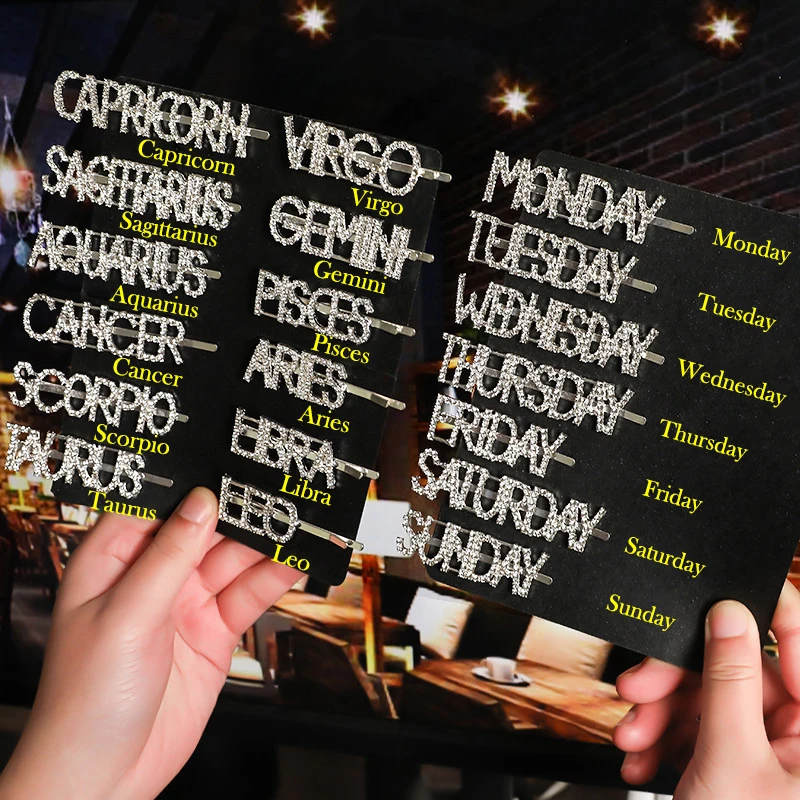 CAPRICORN
Capricorn
SAGITTARIUS
Sagittarius
AQUARIUS
Aquarius
CANCER
Cancer
SCORPIO
Scorpio
TAURUS
Taurus
VIRGO
Virgo
GEMINI
Gemini
PISCES
Pisces
ARIES
Aries
LIBRA
Libra
LEO
Leo
MONDAY
Monday
TUESDAY
Tuesday
WEDNESDAY
Wednesday
THURSDAY
Thursday
FRIDAY
Friday
SATURDAY
Saturday
SUNDAY
Sunday